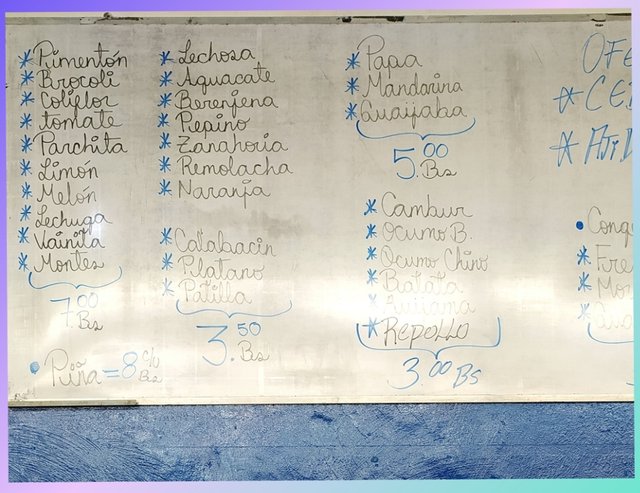 * Pimentón
* Brocoli
* Coliflor
* tomate
* Parchita
* Limón
* Melón
* Lechuga
* Vainita
* Montes
7.00 Bs
• Piña = 8 c/u Bs
* Lechosa
* Aguacate
* Berenjena
* Pepino
* Zanahoria
* Remolacha
* Naranja
* Calabacin
* Platano
* Patilla
3.50 Bs
* Papa
* Mandarina
* Guaijaba
5.00 Bs
* Cambur
* Ocumo B.
* Ocumo Chino
* Batata
* Auiiama
* Repollo
3.00 Bs
OFE
* CE
* AJi D
• Cong
* Fre
* Mo